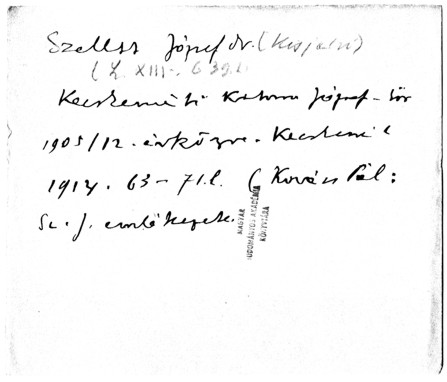 Szellsr József dr. (Kisjenői)
( L. XIII. 639.l.
Kecskeméti Katona József-kör
1905/12. évkönyve. Kecskemét
1914. 63-71.l. ( Kovács Pál:
Sz. J. emlékezete.
MAGYAR
TUDOMÁNYOS AKADÉMIA
KÖNYVTÁRA